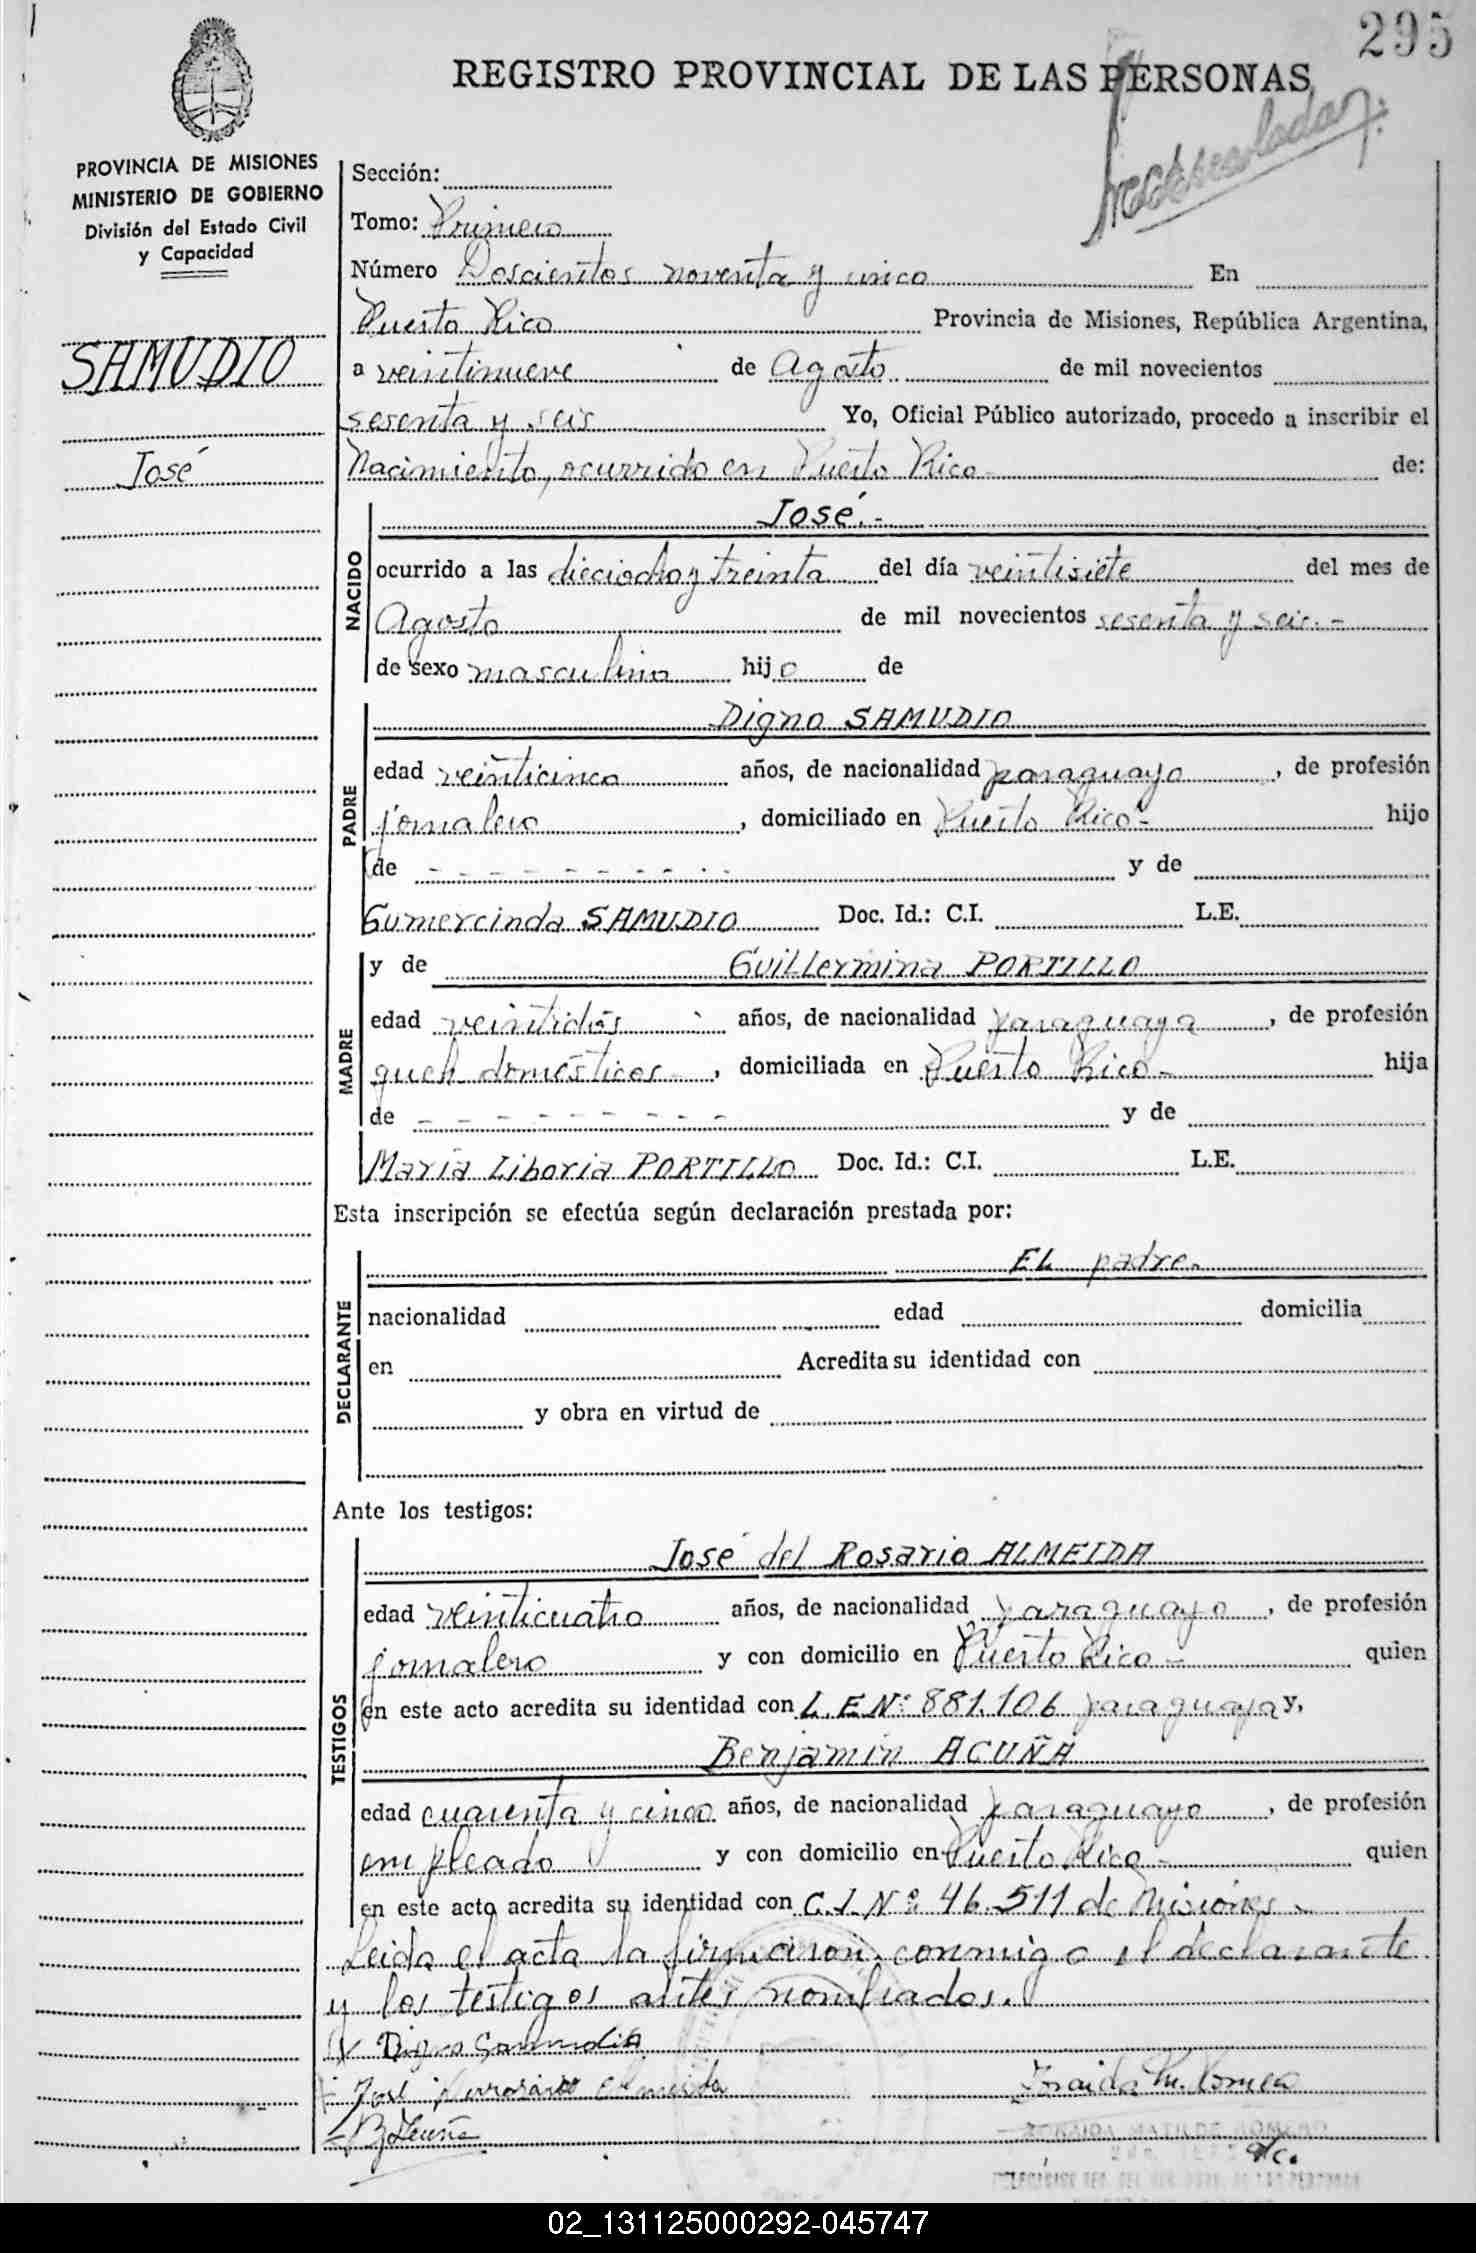 295
REGISTRO PROVINCIAL DE LAS PERSONAS
PROVINCIA DE MISIONES
MINISTERIO DE GOBIERNO
División del Estado Civil
y Capacidad
SAMUDIO
José
Sección:
Tomo: Primero
Número Doscientos noventa y cinco En
Puerto Rico Provincia de Misiones, República Argentina,
a veintinueve de Agosto de mil novecientos
sesenta y seis Yo, Oficial Público autorizado, procedo a inscribir el
Nacimiento, ocurrido en Puerto Rico- de:
NACIDO
José.-
ocurrido a las dieciocho y treinta del día veintisiete del mes de
Agosto de mil novecientos sesenta y seis.-
de sexo masculino hijo de
PADRE
Digno SAMUDIO
edad veinticinco años, de nacionalidad paraguayo, de profesión
jornalero, domiciliado en Puerto Rico- hijo
de - - - - - - - - - y de
Gumercinda SAMUDIO Doc. Id.: C.I. L.E.
MADRE
y de Guillermina PORTILLO
edad veintidós años, de nacionalidad paraguaya, de profesión
queh domésticos, domiciliada en Puerto Rico- hija
de - - - - - - - - - y de
María Liboria PORTILLO Doc. Id.: C.I. L.E.
Esta inscripción se efectúa según declaración prestada por:
DECLARANTE
EL padre.
nacionalidad edad domicilia
en Acredita su identidad con
y obra en virtud de
Ante los testigos:
TESTIGOS
José del Rosario ALMEIDA
edad veinticuatro años, de nacionalidad paraguayo, de profesión
jornalero y con domicilio en Puerto Rico- quien
en este acto acredita su identidad con L.E Nº 881.106 paraguaya y,
Benjamín ACUÑA
edad cuarenta y cinco años, de nacionalidad paraguayo, de profesión
empleado y con domicilio en Puerto Rico- quien
en este acto acredita su identidad con C.I. Nº 46.511 de Misiones
Leida el acta la firmaron conmigo el declarante
y los testigos antes nombrados.
Digno Samudio
José Almeida
B Acuña
ZORAIDA MATILDE ROMERO
02_131125000292-045747